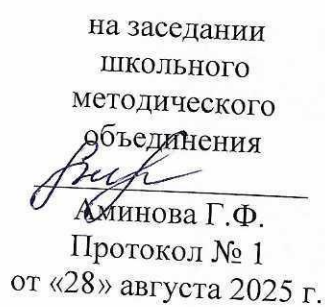 на заседании
школьного
методического
объединения
Аминова Г.Ф.
Протокол № 1
от «28» августа 2025 г.